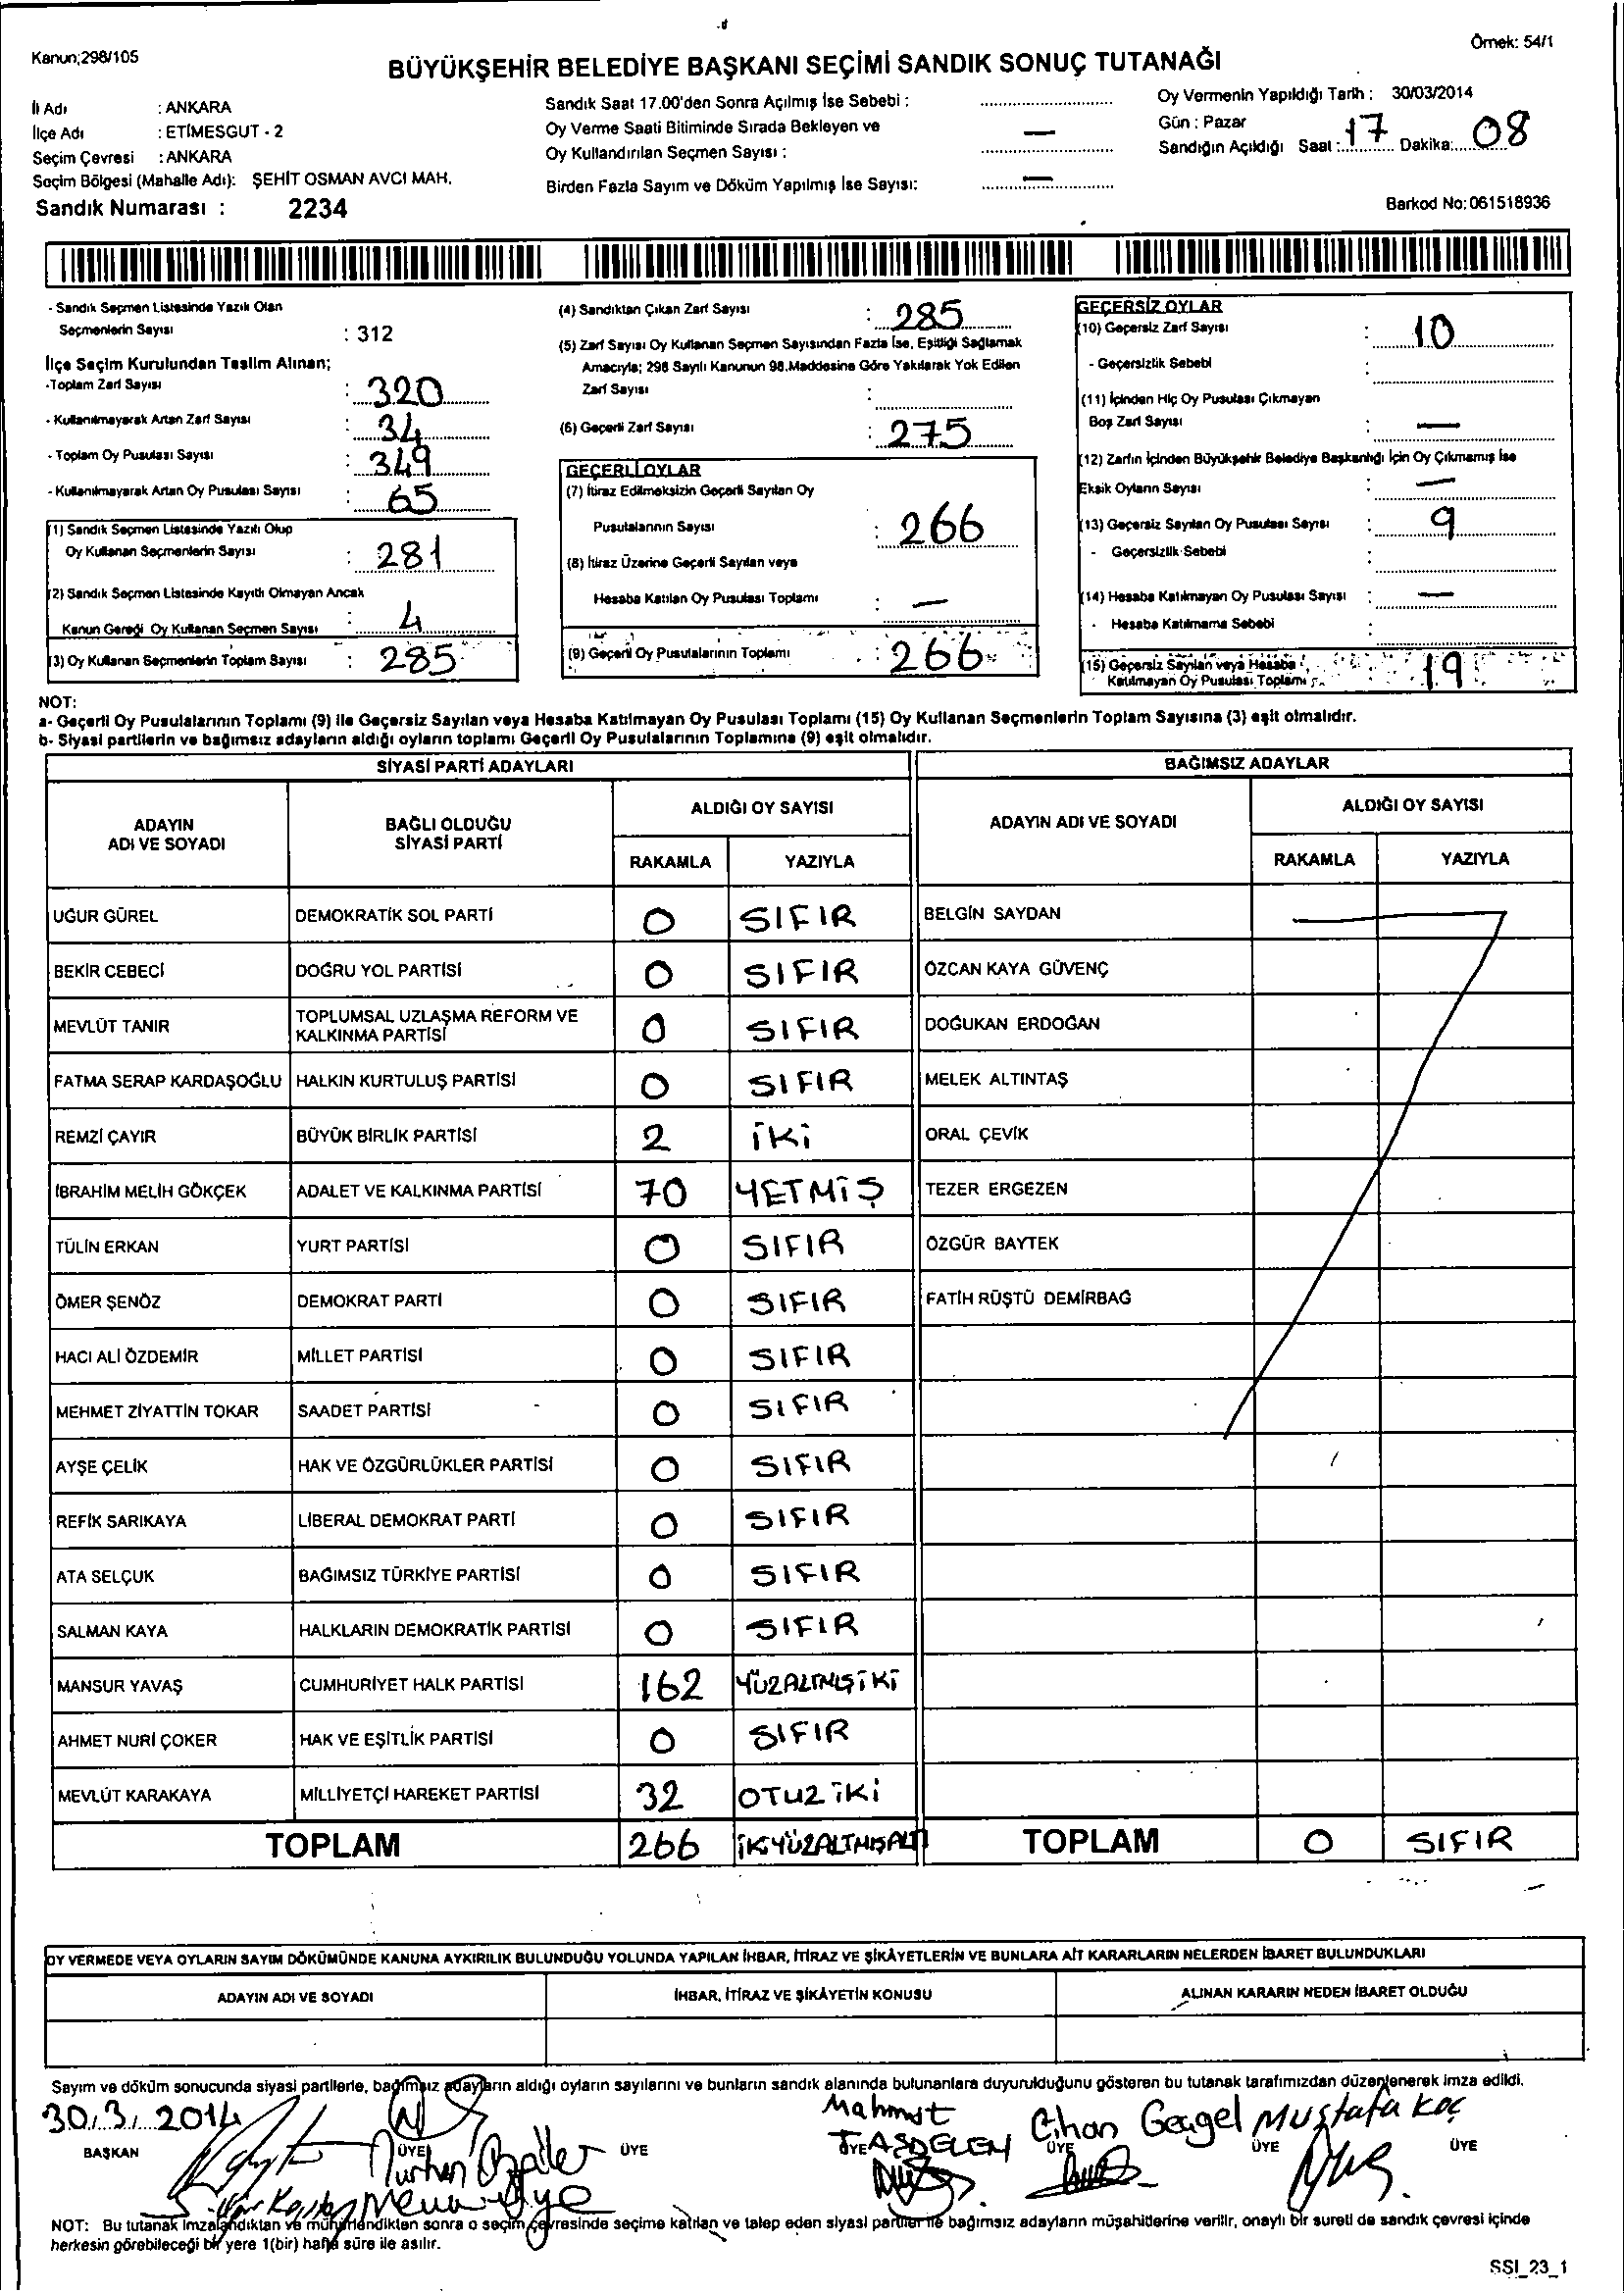 Kanun;298/105
Örnek: 54/1
BÜYÜKŞEHİR BELEDİYE BAŞKANI SEÇİMİ SANDIK SONUÇ TUTANAĞI
İl Adı : ANKARA
İlçe Adı : ETİMESGUT - 2
Seçim Çevresi : ANKARA
Seçim Bölgesi (Mahalle Adı): ŞEHİT OSMAN AVCI MAH.
Sandık Numarası : 2234
Sandık Saat 17.00'den Sonra Açılmış İse Sebebi :
Oy Verme Saati Bitiminde Sırada Bekleyen ve
Oy Kullandırılan Seçmen Sayısı : —
Birden Fazla Sayım ve Döküm Yapılmış İse Sayısı: —
Oy Vermenin Yapıldığı Tarih : 30/03/2014
Gün : Pazar
Sandığın Açıldığı Saat : 17 Dakika: 08
Barkod No: 061518936
- Sandık Seçmen Listesinde Yazılı Olan
Seçmenlerin Sayısı : 312
İlçe Seçim Kurulundan Teslim Alınan;
-Toplam Zarf Sayısı : 320
- Kullanılmayarak Artan Zarf Sayısı : 34
- Toplam Oy Pusulası Sayısı : 349
- Kullanılmayarak Artan Oy Pusulası Sayısı : 65
(1) Sandık Seçmen Listesinde Yazılı Olup
Oy Kullanan Seçmenlerin Sayısı : 281
(2) Sandık Seçmen Listesinde Kayıtlı Olmayan Ancak
Kanun Gereği Oy Kullanan Seçmen Sayısı : 4
(3) Oy Kullanan Seçmenlerin Toplam Sayısı : 285
(4) Sandıktan Çıkan Zarf Sayısı : 285
(5) Zarf Sayısı Oy Kullanan Seçmen Sayısından Fazla İse, Eşitliği Sağlamak
Amacıyla; 298 Sayılı Kanunun 98.Maddesine Göre Yakılarak Yok Edilen
Zarf Sayısı :
(6) Geçerli Zarf Sayısı : 275
GEÇERLİ OYLAR
(7) İtiraz Edilmeksizin Geçerli Sayılan Oy
Pusulalarının Sayısı : 266
(8) İtiraz Üzerine Geçerli Sayılan veya
Hesaba Katılan Oy Pusulası Toplamı : —
(9) Geçerli Oy Pusulalarının Toplamı : 266
GEÇERSİZ OYLAR
(10) Geçersiz Zarf Sayısı : 10
- Geçersizlik Sebebi :
(11) İçinden Hiç Oy Pusulası Çıkmayan
Boş Zarf Sayısı : —
(12) Zarfın İçinden Büyükşehir Belediye Başkanlığı İçin Oy Çıkmamış İse
Eksik Oyların Sayısı : —
(13) Geçersiz Sayılan Oy Pusulası Sayısı : 9
- Geçersizlik Sebebi :
(14) Hesaba Katılmayan Oy Pusulası Sayısı : —
- Hesaba Katılmama Sebebi :
(15) Geçersiz Sayılan veya Hesaba
Katılmayan Oy Pusulası Toplamı : 19
NOT:
a- Geçerli Oy Pusulalarının Toplamı (9) ile Geçersiz Sayılan veya Hesaba Katılmayan Oy Pusulası Toplamı (15) Oy Kullanan Seçmenlerin Toplam Sayısına (3) eşit olmalıdır.
b- Siyasi partilerin ve bağımsız adayların aldığı oyların toplamı Geçerli Oy Pusulalarının Toplamına (9) eşit olmalıdır.
SİYASİ PARTİ ADAYLARI BAĞIMSIZ ADAYLAR
ADAYIN ADI VE SOYADI BAĞLI OLDUĞU SİYASİ PARTİ ALDIĞI OY SAYISI ADAYIN ADI VE SOYADI ALDIĞI OY SAYISI
RAKAMLA YAZIYLA RAKAMLA YAZIYLA
UĞUR GÜREL DEMOKRATİK SOL PARTİ 0 SIFIR BELGİN SAYDAN
BEKİR CEBECİ DOĞRU YOL PARTİSİ 0 SIFIR ÖZCAN KAYA GÜVENÇ
MEVLÜT TANIR TOPLUMSAL UZLAŞMA REFORM VE KALKINMA PARTİSİ 0 SIFIR DOĞUKAN ERDOĞAN
FATMA SERAP KARDAŞOĞLU HALKIN KURTULUŞ PARTİSİ 0 SIFIR MELEK ALTINTAŞ
REMZİ ÇAYIR BÜYÜK BİRLİK PARTİSİ 2 İKİ ORAL ÇEVİK
İBRAHİM MELİH GÖKÇEK ADALET VE KALKINMA PARTİSİ 70 YETMİŞ TEZER ERGEZEN
TÜLİN ERKAN YURT PARTİSİ 0 SIFIR ÖZGÜR BAYTEK
ÖMER ŞENÖZ DEMOKRAT PARTİ 0 SIFIR FATİH RÜŞTÜ DEMİRBAĞ
HACI ALİ ÖZDEMİR MİLLET PARTİSİ 0 SIFIR
MEHMET ZİYATTİN TOKAR SAADET PARTİSİ 0 SIFIR
AYŞE ÇELİK HAK VE ÖZGÜRLÜKLER PARTİSİ 0 SIFIR
REFİK SARIKAYA LİBERAL DEMOKRAT PARTİ 0 SIFIR
ATA SELÇUK BAĞIMSIZ TÜRKİYE PARTİSİ 0 SIFIR
SALMAN KAYA HALKLARIN DEMOKRATİK PARTİSİ 0 SIFIR
MANSUR YAVAŞ CUMHURİYET HALK PARTİSİ 162 YÜZALTMIŞİKİ
AHMET NURİ ÇOKER HAK VE EŞİTLİK PARTİSİ 0 SIFIR
MEVLÜT KARAKAYA MİLLİYETÇİ HAREKET PARTİSİ 32 OTUZ İKİ
TOPLAM 266 İKİYÜZALTMIŞALTI TOPLAM 0 SIFIR
OY VERMEDE VEYA OYLARIN SAYIM DÖKÜMÜNDE KANUNA AYKIRILIK BULUNDUĞU YOLUNDA YAPILAN İHBAR, İTİRAZ VE ŞİKÂYETLERİN VE BUNLARA AİT KARARLARIN NELERDEN İBARET BULUNDUKLARI
ADAYIN ADI VE SOYADI İHBAR, İTİRAZ VE ŞİKÂYETİN KONUSU ALINAN KARARIN NEDEN İBARET OLDUĞU
Sayım ve döküm sonucunda siyasi partilerle, bağımsız adayların aldığı oyların sayılarını ve bunların sandık alanında bulunanlara duyurulduğunu gösteren bu tutanak tarafımızdan düzenlenerek imza edildi.
30/3/2014 Mahmut TAŞDELEN Cihan Mustafa Koç
BAŞKAN ÜYE ÜYE ÜYE ÜYE ÜYE ÜYE
NOT: Bu tutanak imzalandıktan ve mühürlendikten sonra o seçim çevresinde seçime katılan ve talep eden siyasi partiler ile bağımsız adayların müşahitlerine verilir, onaylı bir sureti de sandık çevresi içinde
herkesin görebileceği bir yere 1(bir) hafta süre ile asılır.
SSI_23_1